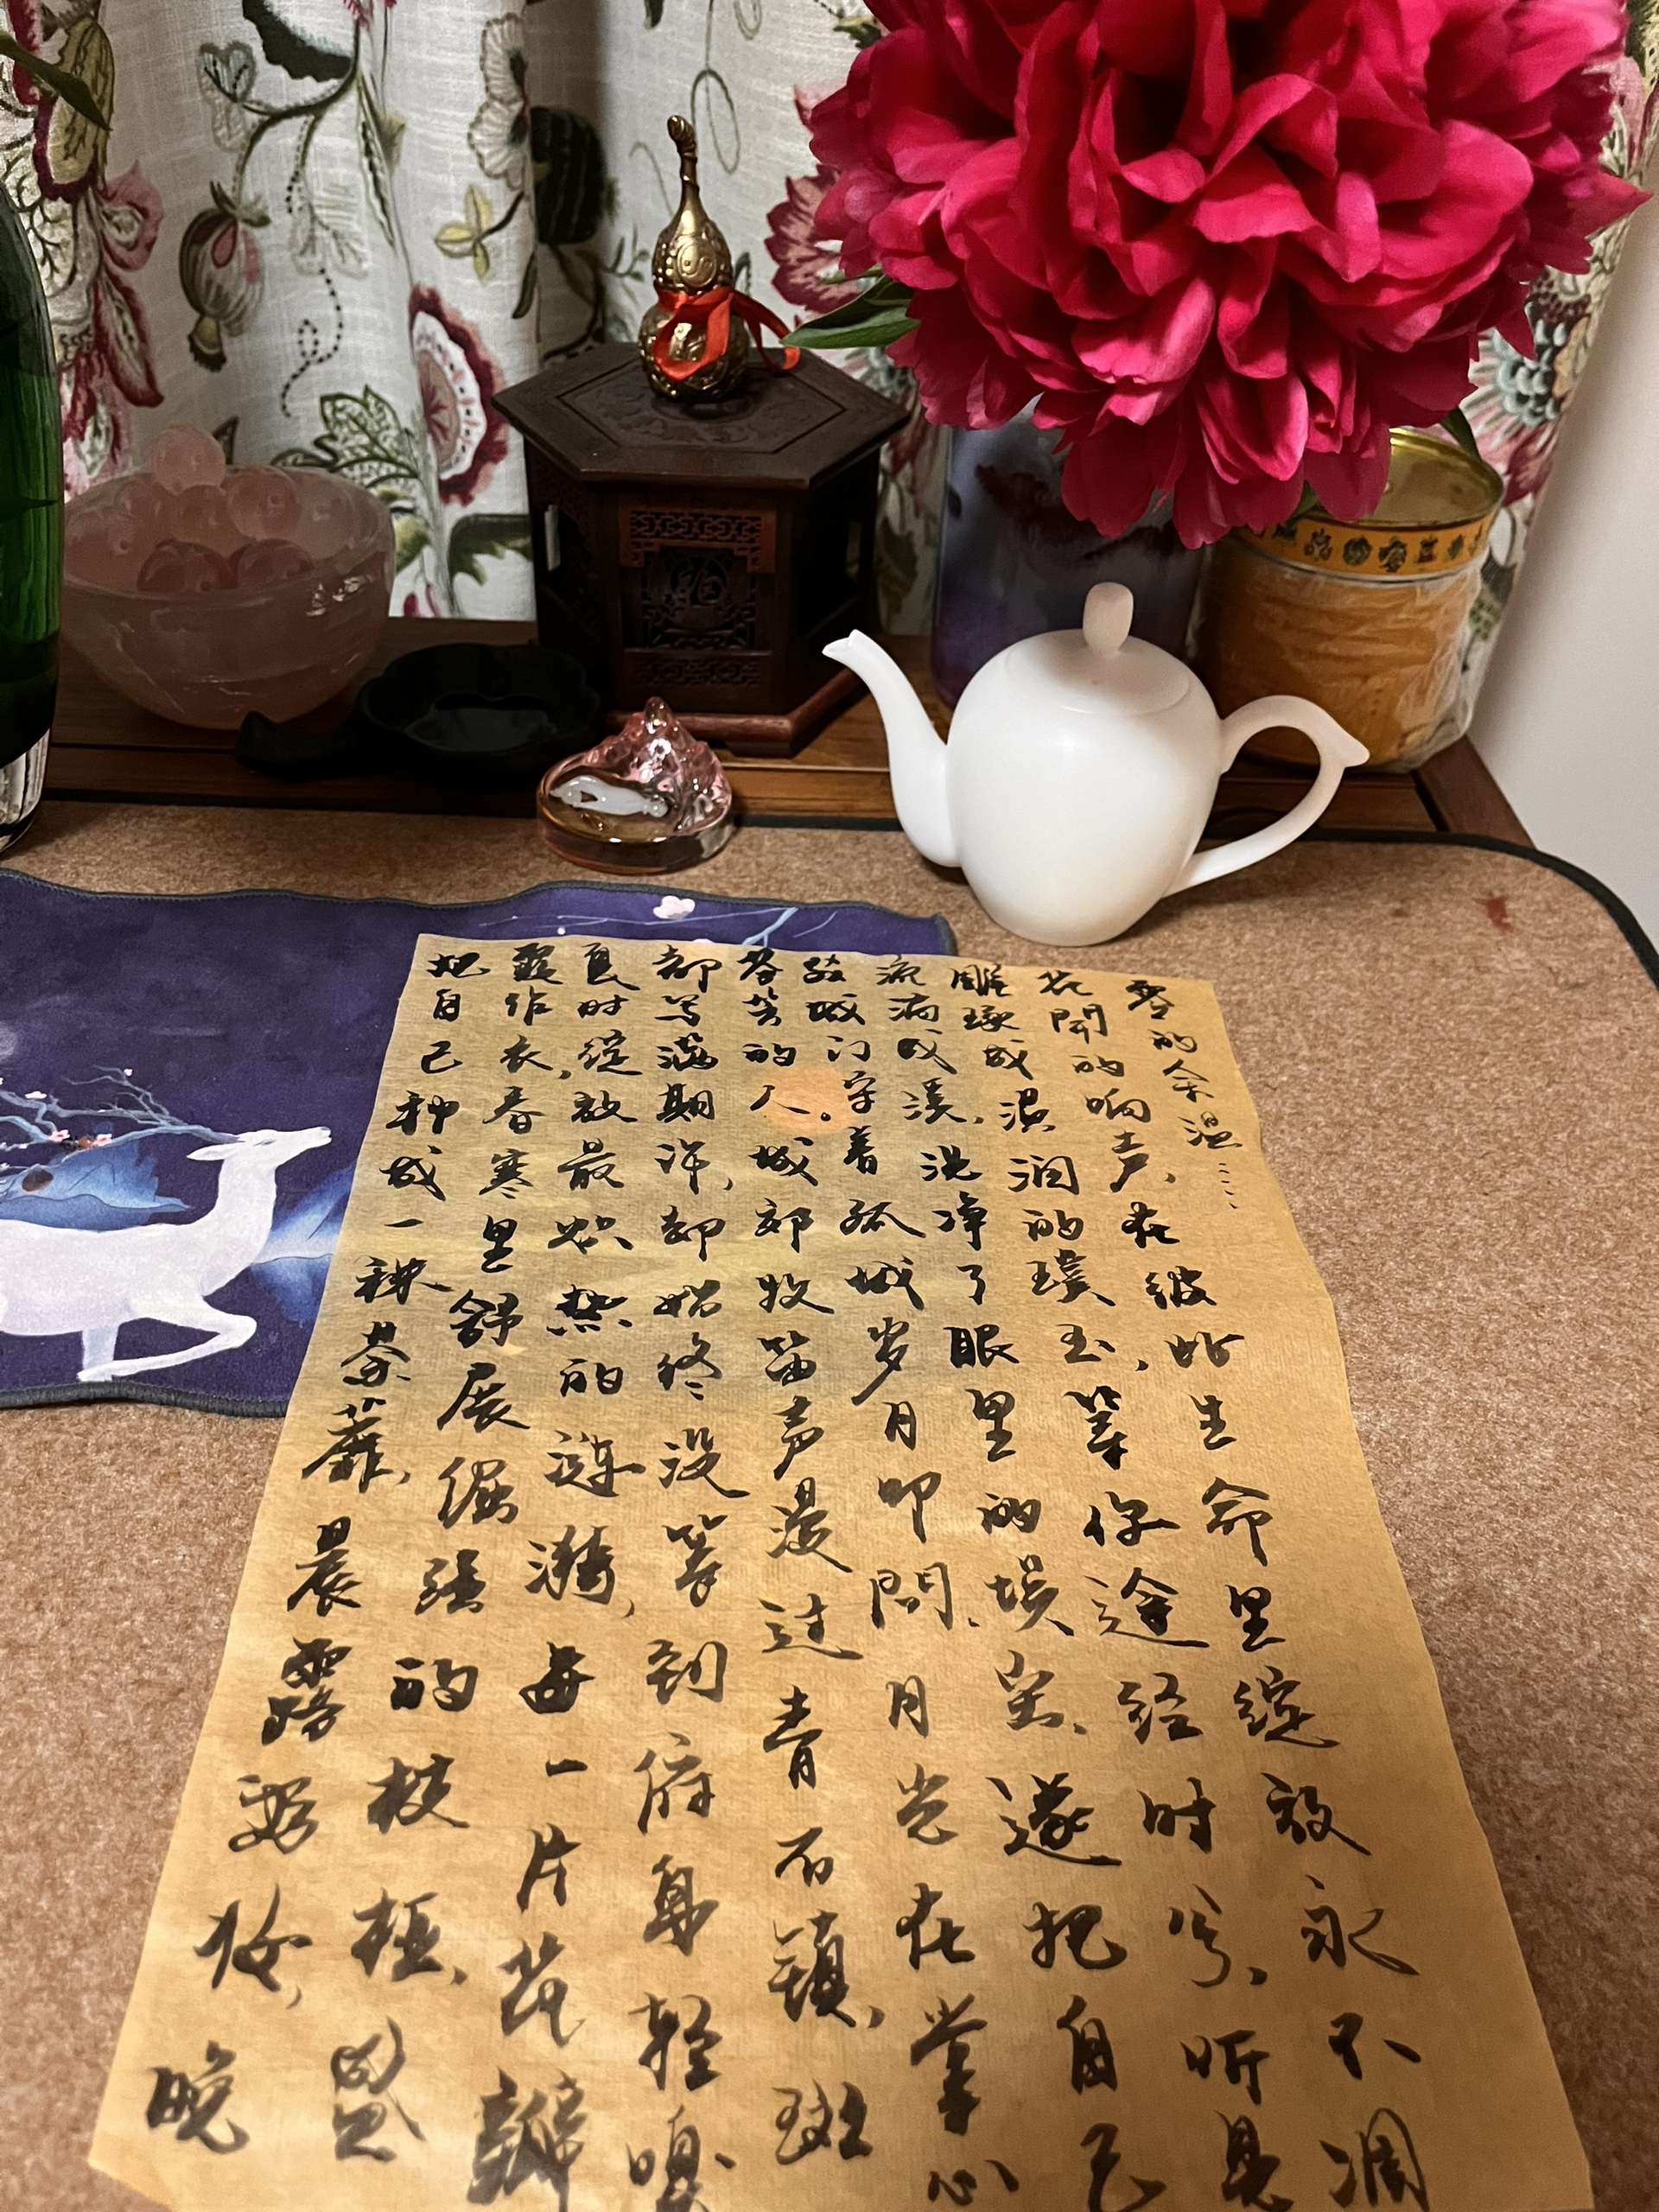 把自己种成一株荼蘼，晨露妆，晚
霞作衣，春寒里舒展倔强的枝桠，盛
夏时绽放最炽热的涟漪，每一片花瓣
都写满期许，却始终没等到俯身轻嗅
芬芳的人。城郊牧笛声漫过青石镇，斑
驳城门守着孤城岁月叩問。月光在掌心
流淌成溪，洗净了眼里的埃尘、遂把自己
雕琢成温润的璞玉，等你途经时兮，听見
花開的响声，在彼此生命里绽放永不凋
零的余温……
福